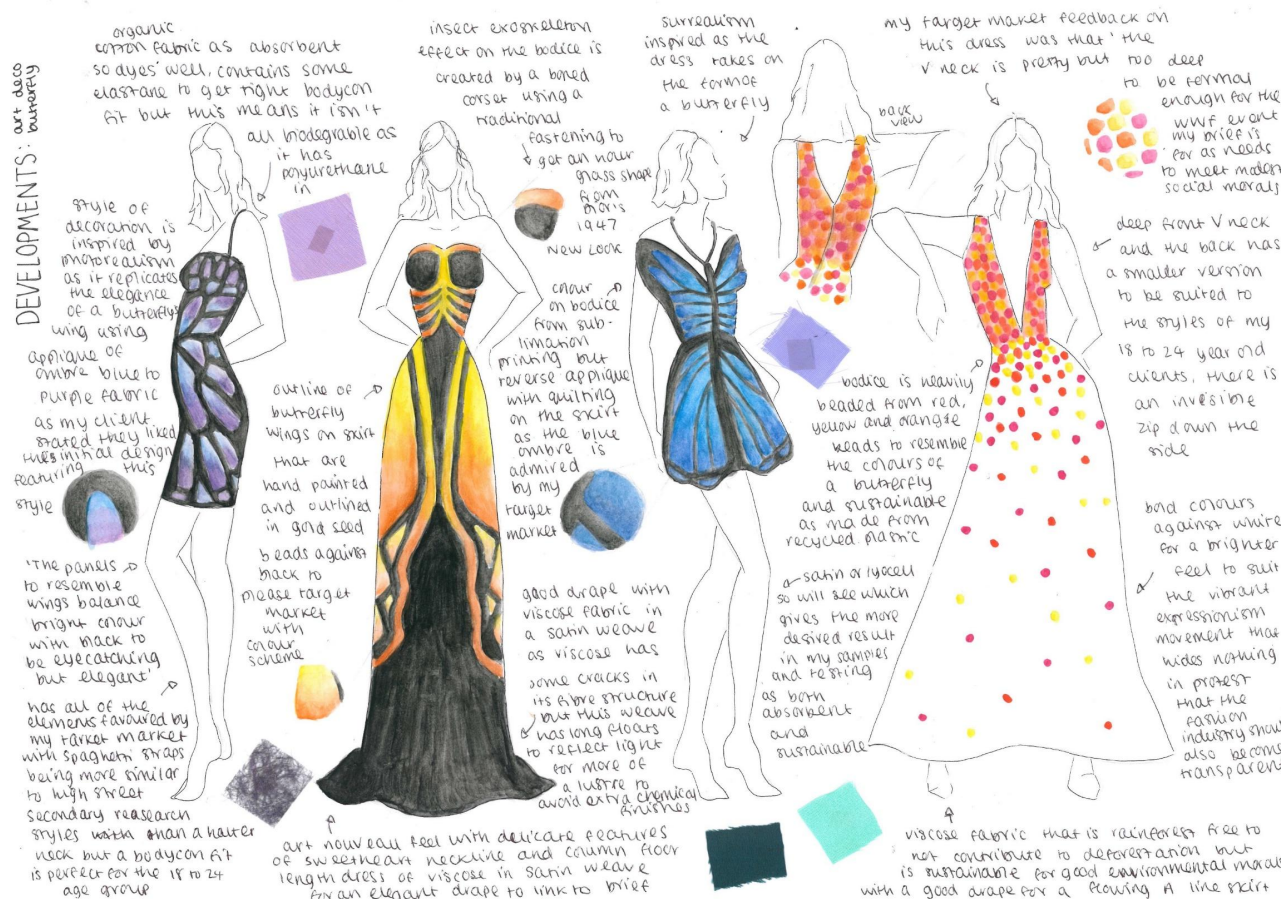 DEVELOPMENTS: art deco
butterfly
organic
cotton fabric as absorbent
so dyes well, contains some
elastane to get right bodycon
fit but this means it isn't
all biodegrable as
it has
polyurethane
in
style of
decoration is
inspired by
photorealism
as it replicates
the elegance
of a butterflys
wing using
applique of
ombre blue to
purple fabric
as my client
stated they liked
the initial design
featuring this
style
'The panels
to resemble
wings balance
bright colour
with black to
be eyecatching
but elegant'
has all of the
elements favoured by
my tarket market
with spaghetti straps
being more similar
to high street
secondary reasearch
styles than a halter
neck but a bodycon fit
is perfect for the 18 to 24
age group
insect exoskeleton
effect on the bodice is
created by a boned
corset using a
traditional
fastening to
get an hour
glass shape
from
Dior's
1947
New Look
outline of
butterfly
wings on skirt
that are
hand painted
and outlined
in gold seed
beads against
black to
please target
market
with
colour
scheme
good drape with
viscose fabric in
a satin weave
as viscose has
some cracks in
its fibre structure
but this weave
has long floats
to reflect light
for more of
a lustre to
avoid extra chemical
finishes
art nouveau feel with delicate features
of sweetheart neckline and column floor
length dress of viscose in satin weave
for an elegant drape to link to brief
surrealism
inspired as the
dress takes on
the form of
a butterfly
colour
on bodice
from sub-
limation
printing but
reverse applique
with quilting
on the skirt
as the blue
ombre is
admired
by my
target
market
back
view
my target market feedback on
this dress was that 'the
V neck is pretty but too deep
to be formal
enough for the
WWF event
my brief is
for as needs
to meet modest
social morals
deep front V neck
and the back has
a smaller version
to be suited to
the styles of my
18 to 24 year old
clients, there is
an invisible
zip down the
side
bodice is heavily
beaded from red,
yellow and orange
beads to resemble
the colours of
a butterfly
and sustainable
as made from
recycled plastic
satin or lyocell
so will see which
gives the more
desired result
in my samples
and testing
as both
absorbent
and
sustainable
bold colours
against white
for a brighter
feel to suit
the vibrant
expressionism
movement that
hides nothing
in protest
that the
fashion
industry should
also become
transparent
viscose fabric that is rainforest free to
not contribute to deforestation but
is sustainable for good environmental morals
with a good drape for a flowing A line skirt